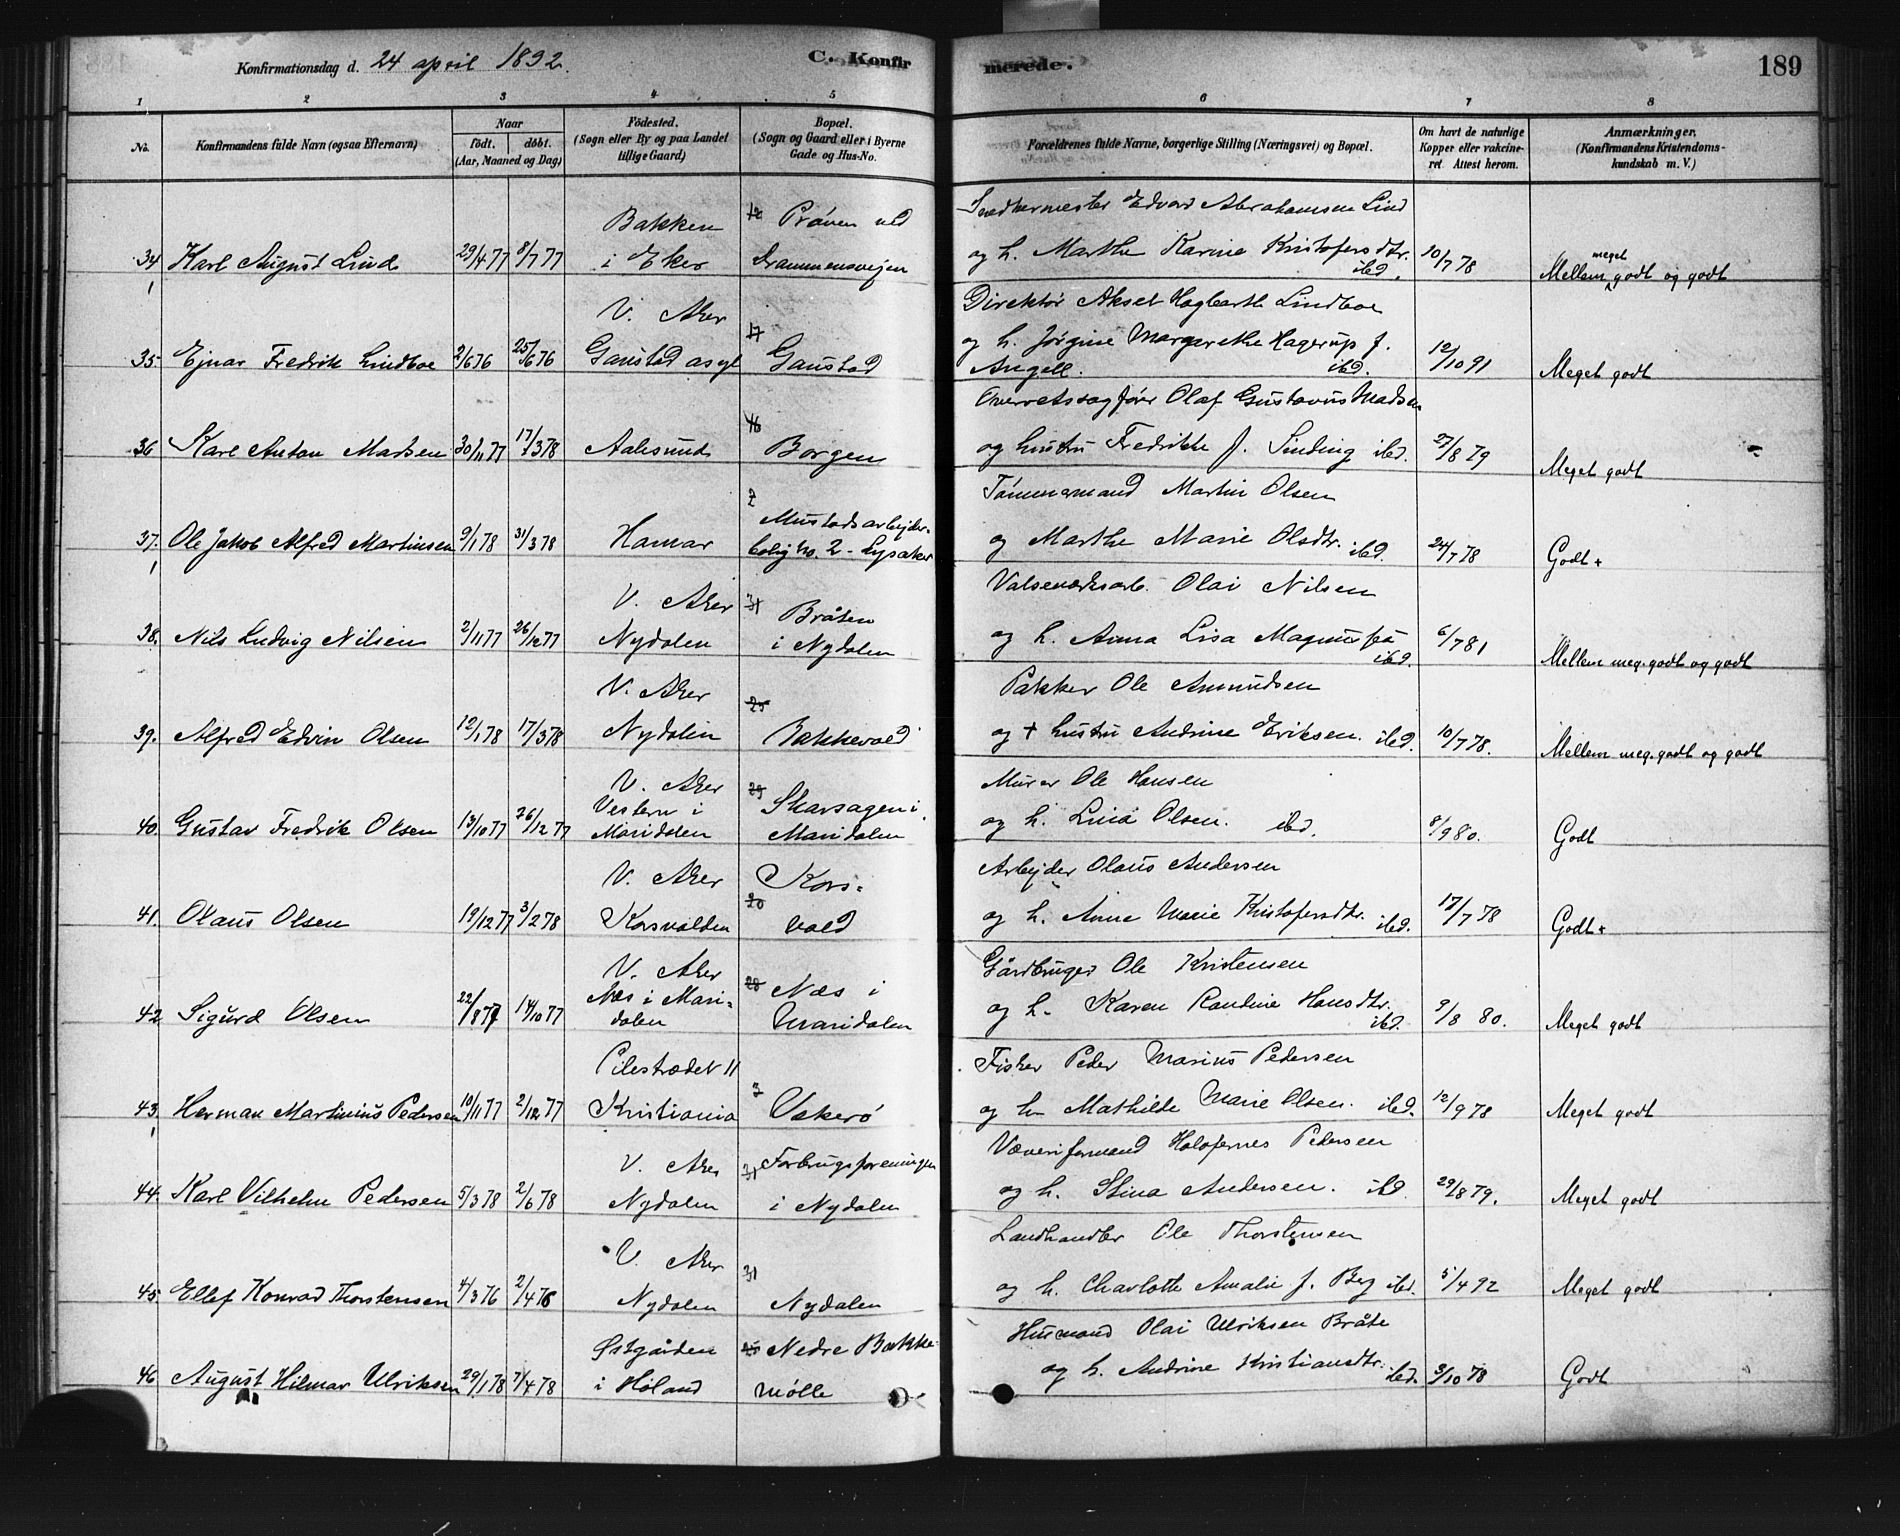 Konfirmationsdag d. 24 april 1892.
C. Konfir
merede.
189
1 2 3 4 5 6 7 8
No.
Konfirmandens fulde Navn (ogsaa Efternavn)
Naar
født. døbt.
(Aar, Maaned og Dag)
Fødested.
(Sogn eller By og paa Landet
tillige Gaard)
Bopæl.
(Sogn og Gaard eller i Byerne
Gade og Hus-No.
Forældrenes fulde Navne, borgerlige Stilling (Næringsvei) og Bopæl.
Om havt de naturlige
Kopper eller vakcine-
ret Attest herom.
Anmærkninger.
(Konfirmandens Kristendoms-
kundskab m. V.)
Bakken Prøven ved Snedkermester Edvard Abrahamsen Lind
34 Karl August Lind 29/4 77 8/7 77 i Eker Drammensvejen og h. Marthe Karine Kristofersdtr. ibd. 10/7 78 Mellem meget godt og godt
V. Aker 17 Direktør Aksel Hagbarth Lindboe
35. Ejnar Fredrik Lindboe 2/6 76 25/6 76 Gaustad asyl Gaustad og h. Jørgine Margarethe Hagerup f.
Angell. ibd. 12/10 91 Meget godt
Overretssagfører Olaf Gustavus Madsen
36 Karl Anton Madsen 30/11 77 17/3 78 Aalesund Borgen og hustru Fredrikke f. Sinding ibd. 27/8 79 Meget godt
7 Mustads arbejder- Tømmermand Martin Olsen
37. Ole Jakob Alfred Martinsen 9/1 78 31/3 78 Hamar bolig No. 2 - Lysaker og Marthe Marie Olsdtr. ibd. 24/7 78 Godt +
V. Aker 31 Bråten Valseværksarb. Olai Nilsen
38. Nils Ludvig Nilsen 2/11 77 26/12 77 Nydalen i Nydalen og h. Anna Lisa ibd. 6/7 81 Mellem meg. godt og godt
V. Aker 25 Pakker Ole Amundsen
39. Alfred Edvin Olsen 12/1 78 17/3 78 Nydalen Bakkevold og + hustru Andrine Eriksen. ibd. 10/7 78. Mellem meg. godt og godt
V. Aker 29 Skarsagen i Murer Ole Hansen
40. Gustav Fredrik Olsen 13/10 77 26/12 77 Vestern i Maridalen Maridalen og h. Lina Olsen. ibd. 8/9 80. Godt
V. Aker Kors- Arbejder Olaus Andersen
41. Olaus Olsen 19/12 77 3/2 78 Korsvolden 20 vold og h. Anne Marie Kristofersdtr. ibd. 17/7 78 Godt +
V. Aker 28 Næs i Gårdbruger Ole Kristensen
42 Sigurd Olsen 22/8 77 14/10 77 Næs i Mari-
dalen Maridalen og h. Karen Pauline Hansdtr. ibd. 9/8 80. Meget godt
Pilestrædet 11 Fisker Peder Marius Pedersen
43. Herman Martinius Pedersen 10/11 77 2/12 77 Kristiania 7 Vækerø og h. Mathilde Marie Olsen. ibd. 12/9 78 Meget godt
V. Aker 31 Forbrugsforeningen Væveriformand Holofernes Pedersen
44. Karl Vilhelm Pedersen 5/3 78 2/6 78 Nydalen i Nydalen og h. Stina Andersen. ibd 29/8 79. Meget godt
V. Aker 31 Landhandler Ole Thorstensen
45. Ellef Konrad Thorstensen 4/3 76 2/4 76 Nydalen Nydalen og h. Charlotte Amalie f. Berg ibd. 5/4 92 Meget godt
Østgården 25 Nedre Bakke- Husmand Olai Ulriksen Bråte
46 August Hilmar Ulriksen 29/1 78 7/4 78 i Høland mølle og h. Andrine Kristiansdtr. ibd. 3/10 78 Godt